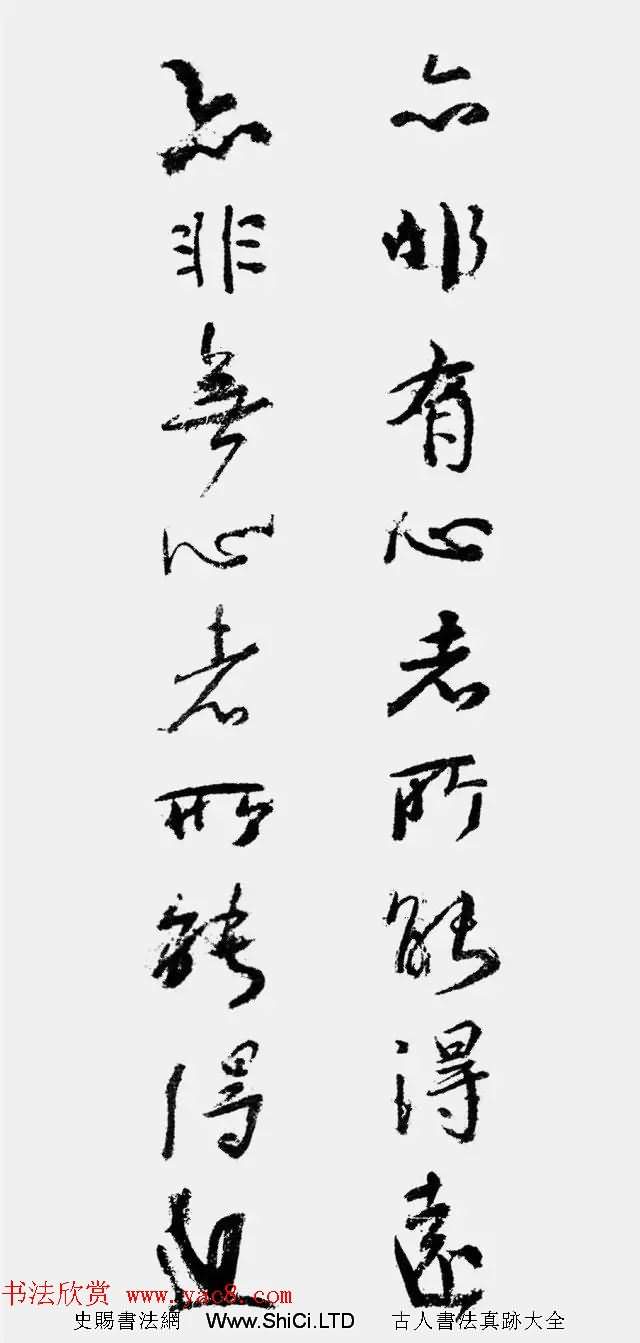 亦非有心者所能得遠
亦非無心者所能得近
书法欣赏 www.yac8.com
史賜書法網 Www.ShiCi.LTD 古人書法真跡大全